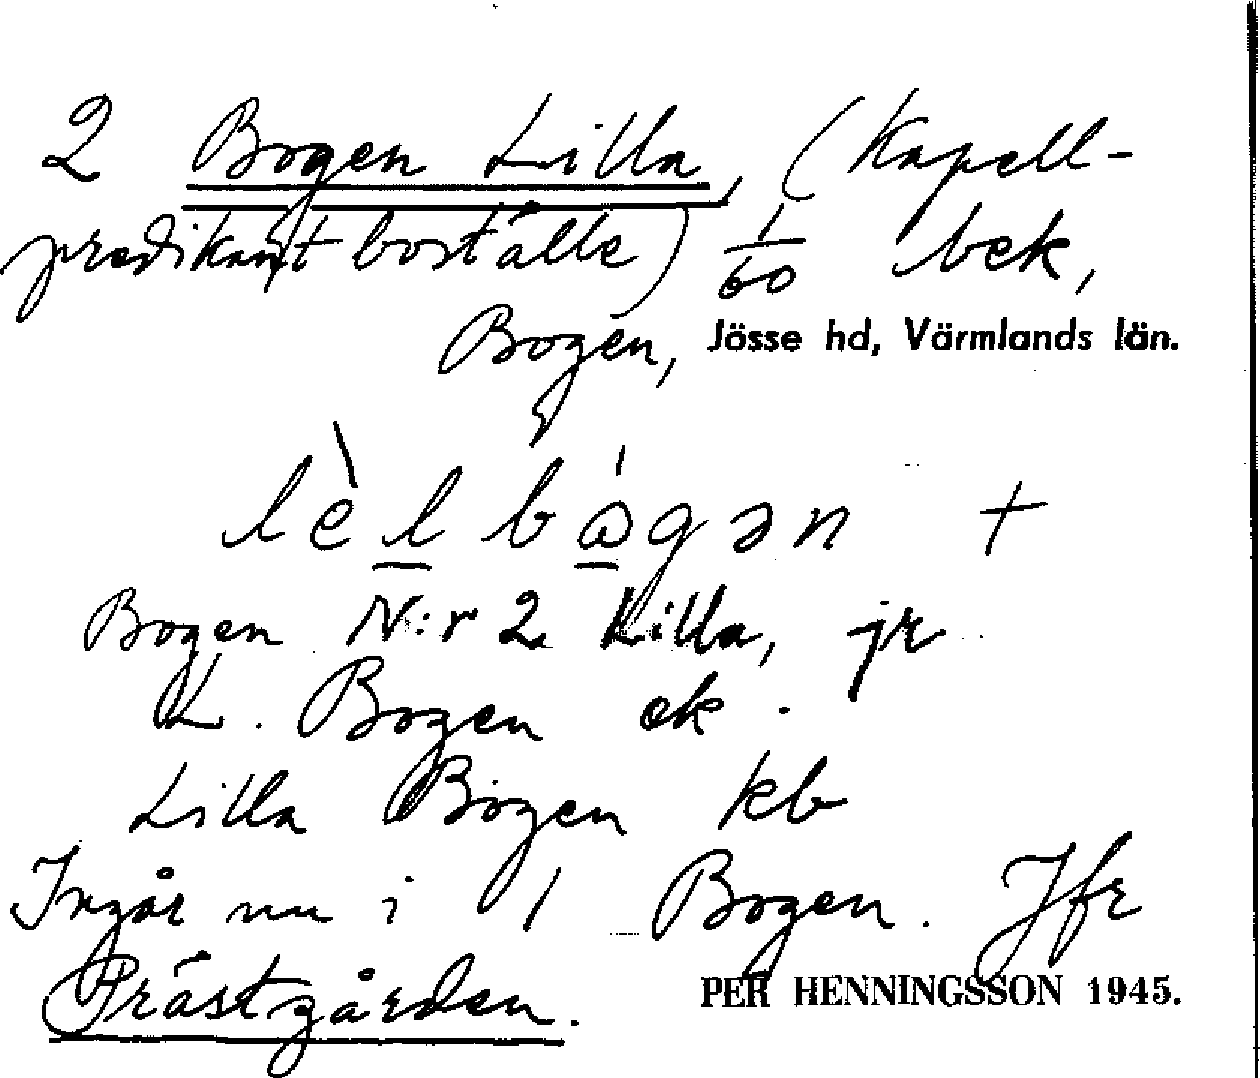 2 Bogen Lilla, (Kapell-
predikantboställe) 1/60 bek,
Bogen, Jösse hd, Värmlands län.
lèl bógən +
Bogen N:r 2 Lilla, jr
L. Bogen ek.
Lilla Bogen kb
Ingår nu i 1 Bogen. Jfr
Prästgården.
PER HENNINGSSON 1945.